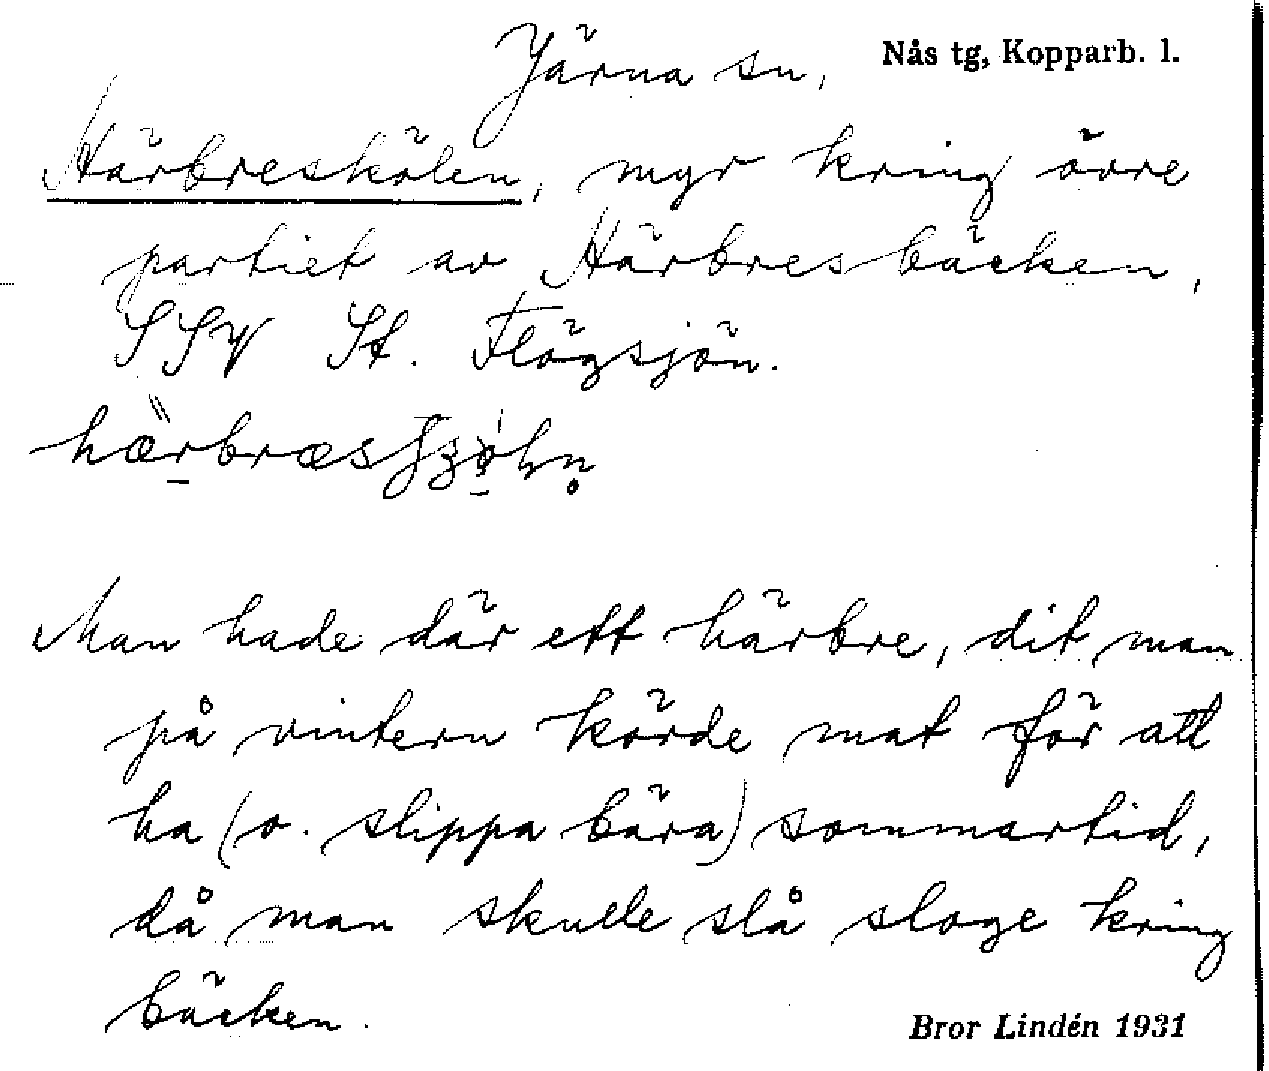 Järna sn, Nås tg, Kopparb. l.
Härbreskölen, myr kring övre
partiet av Härbresbäcken,
SSV St. Flögsjön.
Man hade där ett härbre, dit man
på vintern körde mat för att
ha (o. slippa bära) sommartid,
då man skulle slå sloge kring
bäcken.
Bror Lindén 1931